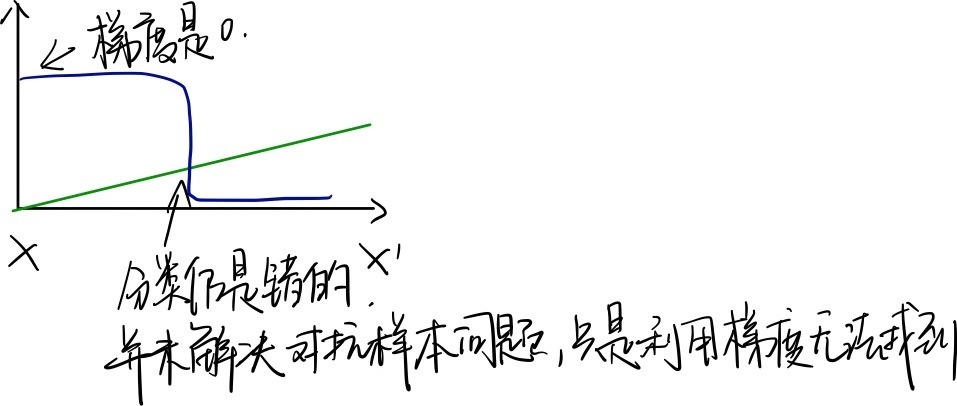 梯度是0.
X
X'
分类仍是错的.
并未解决对抗样本问题,只是利用梯度无法找到